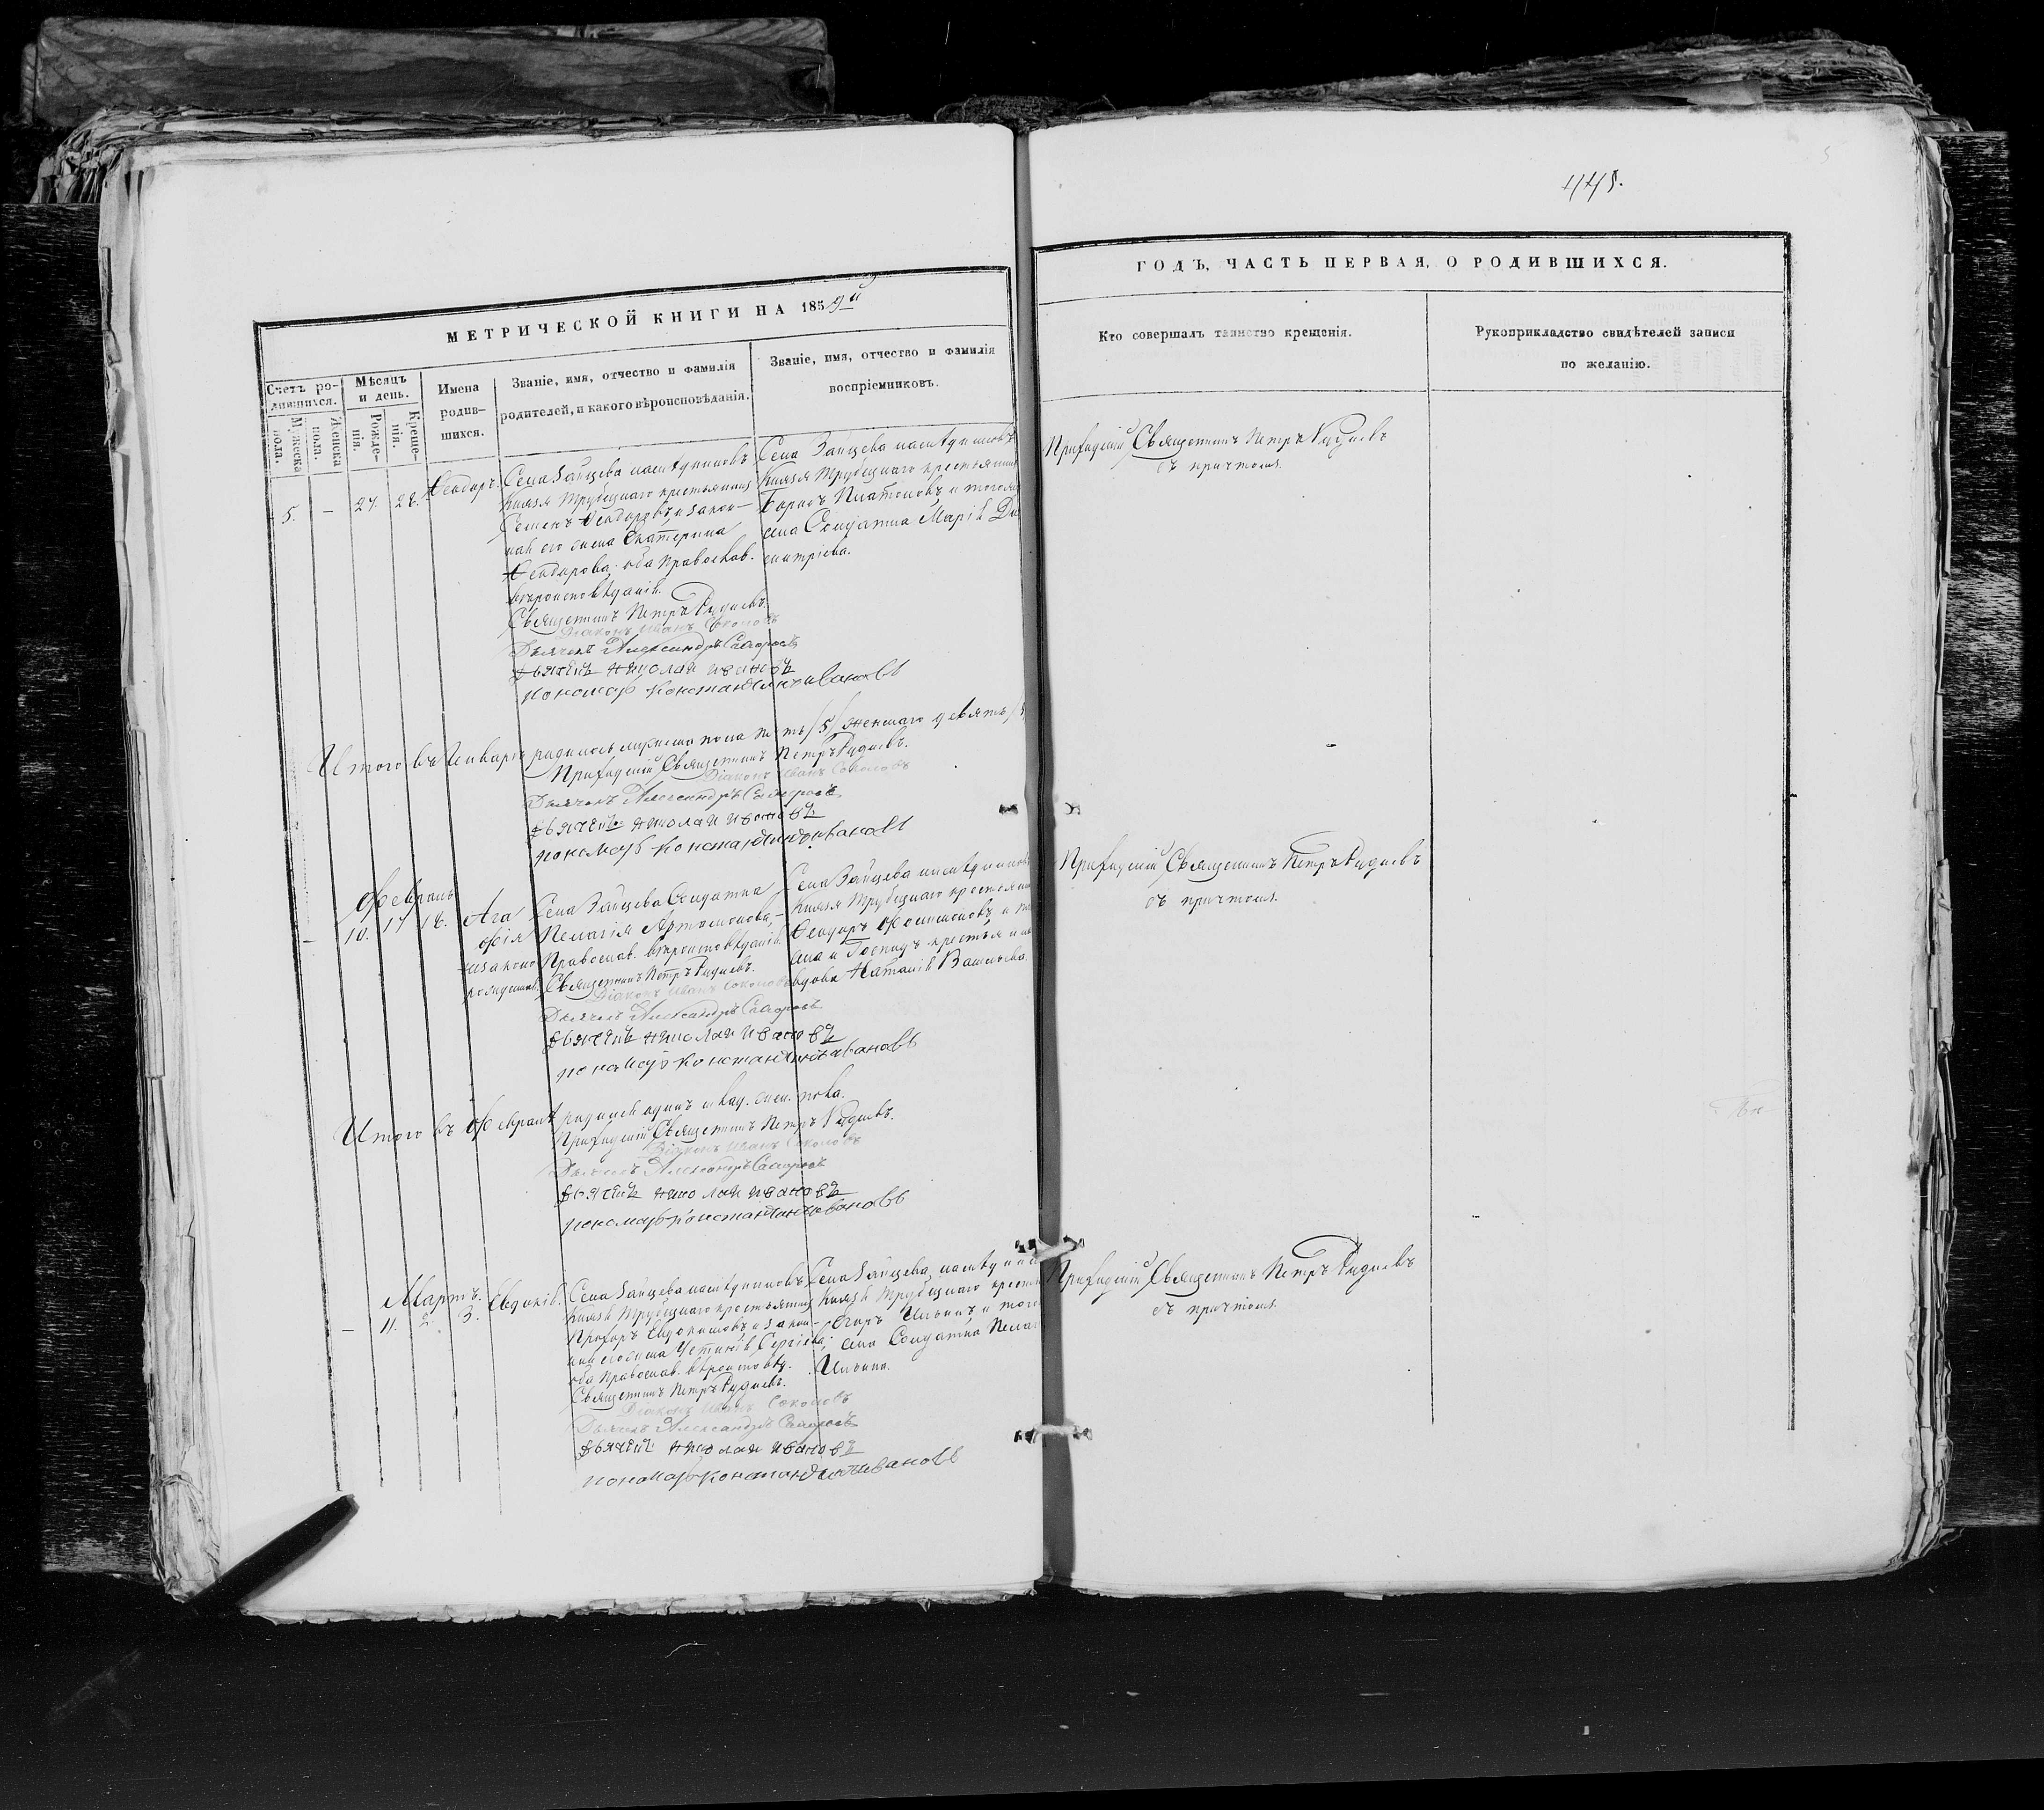 445.
МЕТРИЧЕСКОЙ КНИГИ НА 1859й
Счетъ ро-
дившихся.
Мужеска
пола.
Женска
пола.
Мѣсяцъ
и день.
Рожде-
нія.
Креще-
нія.
Имена
родив-
шихся.
Званіе, имя, отчество и фамилія
родителей, и какого вѣроисповѣданія.
Званіе, имя, отчество и фамилія
воспріемниковъ.
5. — 27. 28. Ѳеодоръ.
Села Зайцева наслѣдниковъ
Князя Трубецкаго крестьянинъ
Семенъ Ѳеодоровъ и закон-
ная его жена Екатерина
Ѳеодорова оба Православ.
вѣроисповѣданія.
Священникъ Петръ
Діаконъ Иванъ Соколовъ
Дьячекъ Александръ
Дьячекъ Николай Ивановъ
пономарь Константинъ Ивановъ
Села Зайцева наслѣдниковъ
Князя Трубецкаго крестьянинъ
Платоновъ и тогоже
села Солдатка Марія Ди
митріева.
Итого въ Генварѣ родилось мужеска пола пять /5/ женскаго девять
Приходскій Священникъ Петръ
Діаконъ Иванъ Соколовъ
Дьячекъ Александръ
Дьячекъ Николай Ивановъ
пономарь Константинъ Ивановъ
Февраль
— 10. 17 18. Ага
фія
незаконо
рожденная.
Села Зайцева Солдатка
Пелагія Артомонова,
Православ. вѣроисповѣданія.
Священникъ Петръ
Діаконъ Иванъ Соколовъ
Дьячекъ Александръ
Дьячекъ Николай Ивановъ
пономарь Константинъ Ивановъ
Села Зайцева наслѣдниковъ
Князя Трубецкаго крестьянинъ
Ѳеодоръ и
села и Господъ крестьян
вдова Наталія Васильева.
Итого въ Февралѣ родилось одинъ млад. жен. пола.
Приходскій Священникъ Петръ
Діаконъ Иванъ Соколовъ
Дьячекъ Александръ
Дьячекъ Николай Ивановъ
пономарь Константинъ Ивановъ
Мартъ.
— 11. 2. 3. Евдокія.
Села Зайцева наслѣдниковъ
Князя Трубецкаго крестьянинъ
Прохоръ Евдокимовъ и закон-
ная его жена Устинія Сергіева,
оба Православ. вѣроисповѣд.
Священникъ Петръ
Діаконъ Иванъ Соколовъ
Дьячекъ Александръ
Дьячекъ Николай Ивановъ
пономарь Константинъ Ивановъ
Села Зайцева наслѣдник
Князя Трубецкаго крестья
Егоръ Ильинъ и того
села Солдатка Пелаг
Ильина.
ГОДЪ, ЧАСТЬ ПЕРВАЯ, О РОДИВШИХСЯ.
Кто совершалъ таинство крещенія.
Рукоприкладство свидѣтелей записи
по желанію.
Приходскій Священникъ Петръ
съ причтомъ.
Приходскій Священникъ Петръ
съ причтомъ.
Приходскій Священникъ Петръ
съ причтомъ.